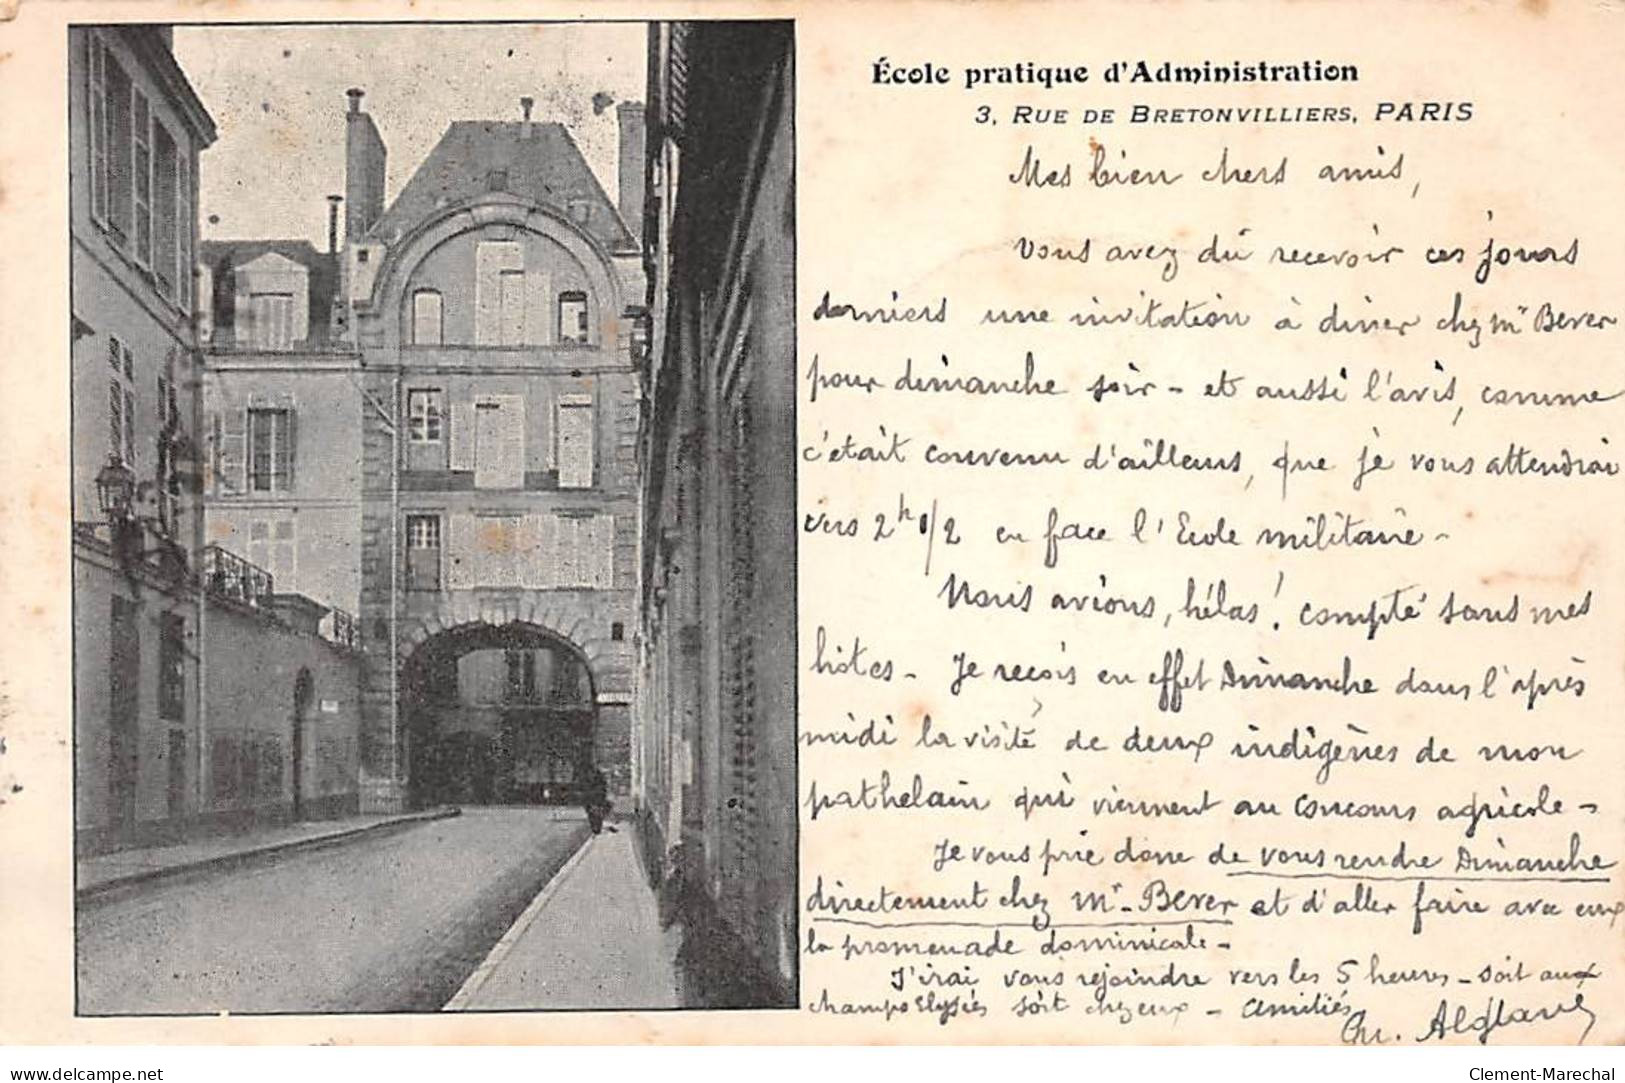 École pratique d'Administration
3, RUE DE BRETONVILLIERS, PARIS
Mes bien chers amis,
Vous avez dû recevoir ces jours
derniers une invitation à diner chez Mr Bever
pour dimanche soir - et aussi l'avis, comme
c'était convenu d'ailleurs, que je vous attendrai
vers 2h 1/2 en face l'Ecole militaire -
Nous avions, hélas! compté sans mes
hôtes - Je reçois en effet Dimanche dans l'après
midi la visite de deux indigènes de mon
pathelain qui viennent au concours agricole -
Je vous prie donc de vous rendre Dimanche
directement chez Mr - Bever et d'aller faire avec eux
la promenade dominicale -
J'irai vous rejoindre vers les 5 heures - soit aux
champs Elysées soit chez eux - Amitiés
Ch.
delcampe.net
Clement-Marechal